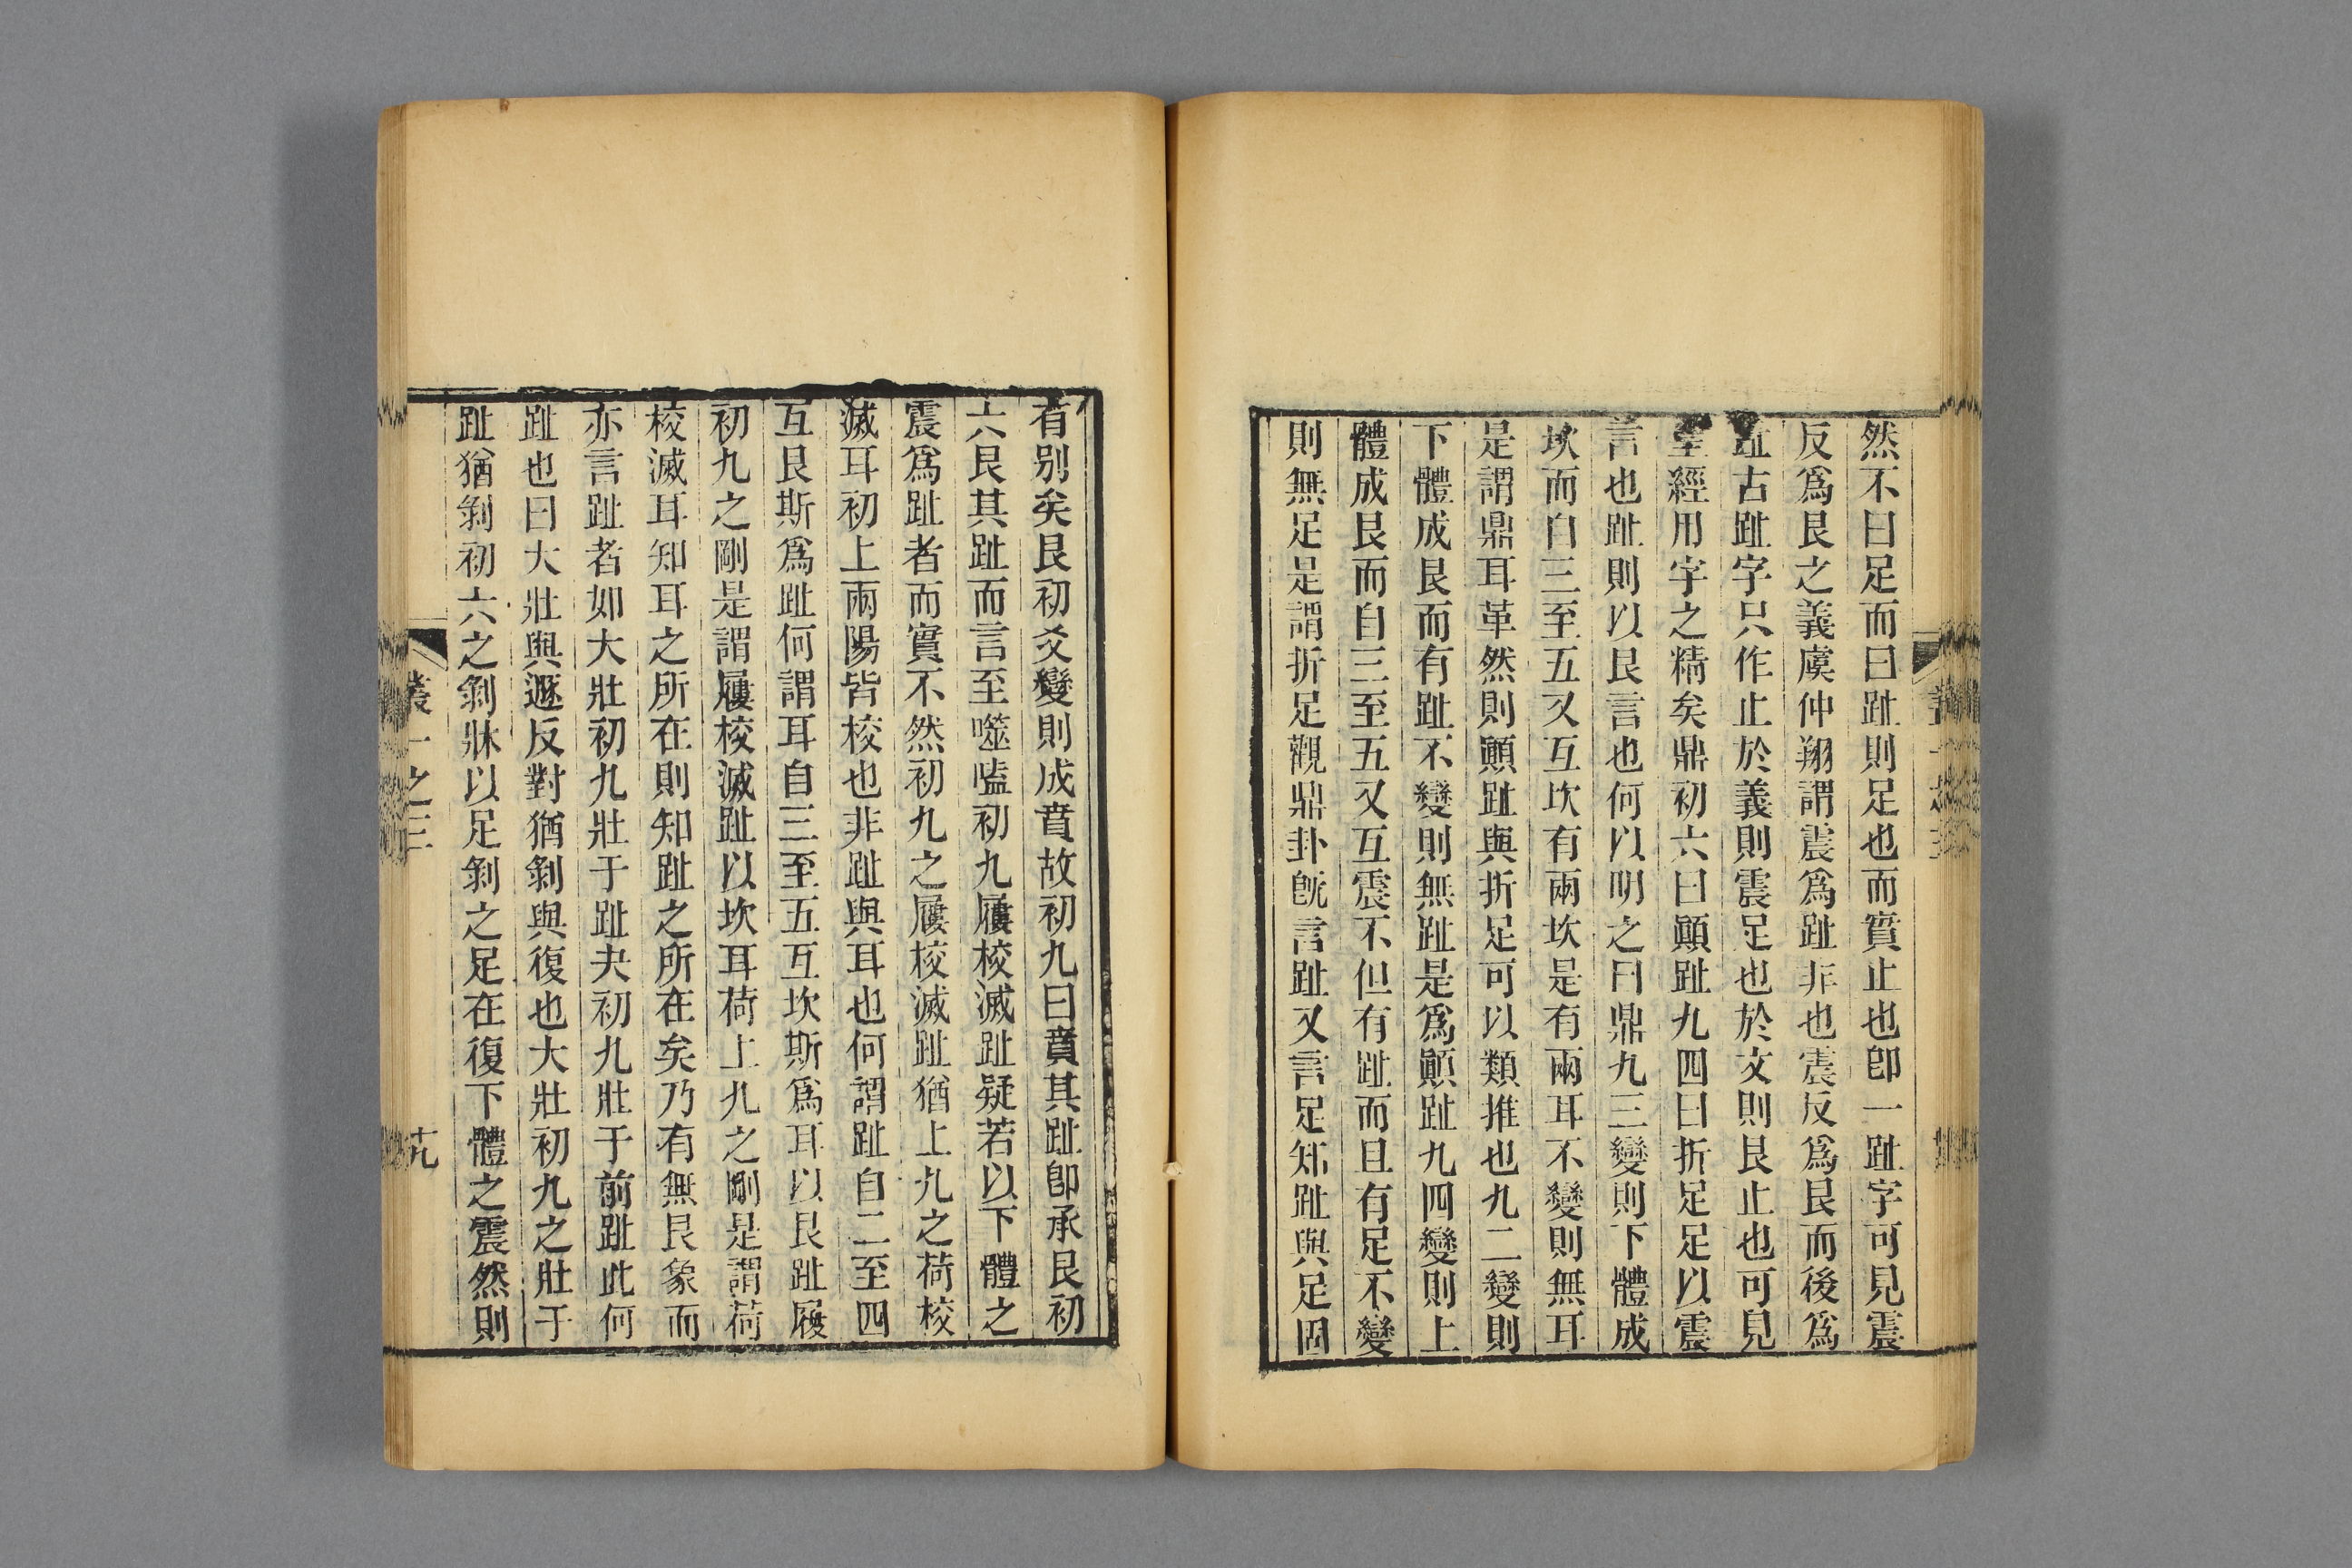 然不曰足而曰趾則足也而實止也卽一趾字可見震
反爲艮之義虞仲翔謂震爲趾非也震反爲艮而後爲
趾古趾字只作止於義則震足也於文則艮止也可見
聖經用字之精矣鼎初六曰顚趾九四曰折足足以震
言也趾則以艮言也何以明之曰鼎九三變則下體成
坎而自三至五又互坎有兩坎是有兩耳不變則無耳
是謂鼎耳革然則顚趾與折足可以類推也九二變則
下體成艮而有趾不變則無趾是爲顚趾九四變則上
體成艮而自三至五又互震不但有趾而且有足不變
則無足是謂折足觀鼎卦旣言趾又言足知趾與足固
有別矣艮初爻變則成賁故初九曰賁其趾卽承艮初
六艮其趾而言至噬嗑初九屨校滅趾疑若以下體之
震爲趾者而實不然初九之屨校滅趾猶上九之荷校
滅耳初上兩陽皆校也非趾與耳也何謂趾自二至四
互艮斯爲趾何謂耳自三至五互坎斯爲耳以艮趾履
初九之剛是謂屨校滅趾以坎耳荷上九之剛是謂荷
校滅耳知耳之所在則知趾之所在矣乃有無艮象而
亦言趾者如大壯初九壯于趾夬初九壯于前趾此何
趾也曰大壯與遯反對猶剝與復也大壯初九之壯于
趾猶剝初六之剝牀以足剝之足在復下體之震然則
叢一之三